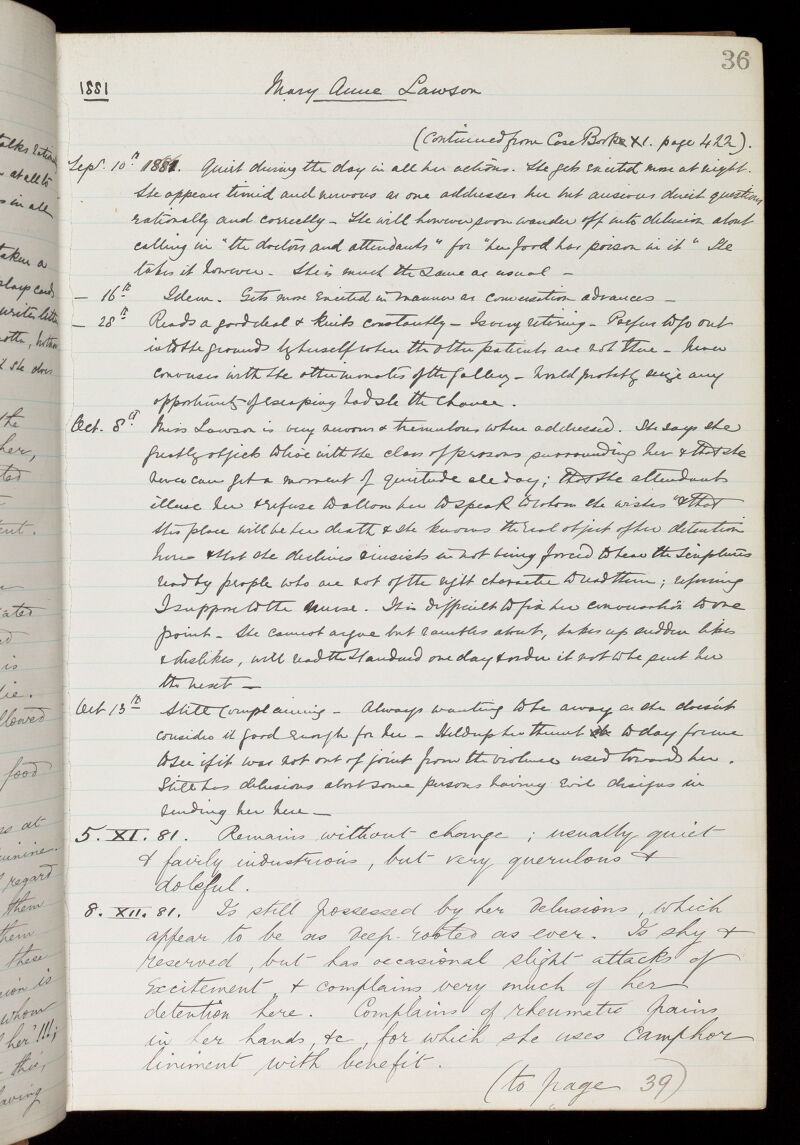 36
1881 Mary Anne Lawson
(Continued from Case Book XI. page 422).
Sept. 10th 1881. Quiet during the day in all her actions. She gets excited more at night.
She appears timid and nervous as one addresses her but answers direct questions
rationally and correctly – She will however soon wander off into delusion about
calling in "the doctors and attendants" for "her food has poison in it" She
takes it however – She is much the same as usual –
– 16th Idem. Gets more excited in manner as conversation advances –
– 28th Reads a good deal & knits constantly – Is very retiring – Prefers to go out
into the grounds by herself when the other patients are not there – Never
converses with the other inmates of the Gallery – Would probably seize any
opportunity of escaping had she the chance.
Oct. 8th Miss Lawson is very nervous & tremulous when addressed. She says she
greatly objects to live with the class of persons surrounding her & that she
never can get a moment of quietude all day; that the attendants
illuse her & refuse to allow her to speak to whom she wishes "& that
this place will be her death & she knows the real object of her detention
here & that she declines & insists on not being forced to hear the Scriptures
read by people who are not of the right character to read them; referring
I suppose to the nurse. It is difficult to fix her conversation to one
point – She cannot argue but rambles about, takes up sudden likes
& dislikes, will read the Standard one day & order it not to be sent her
the next –
Oct. 13th Still complaining – Always wanting to be away as she doesn't
consider it good enough for her – Held up her thumb to day for me
to see if it was not out of joint from the violence used towards her.
Still has delusions about some persons having evil designs in
sending her here –
5. XI. 81. Remains without change; usually quiet
& fairly industrious, but very querulous &
doleful.
8. XII. 81. Is still possessed by her delusions, which
appear to be as deep-rooted as ever. Is shy &
reserved, but has occasional slight attacks of
excitement, & complains very much of her
detention here. Complains of rheumatic pains
in her hands, &c, for which she uses Camphor
liniment with benefit.
(to page 39)